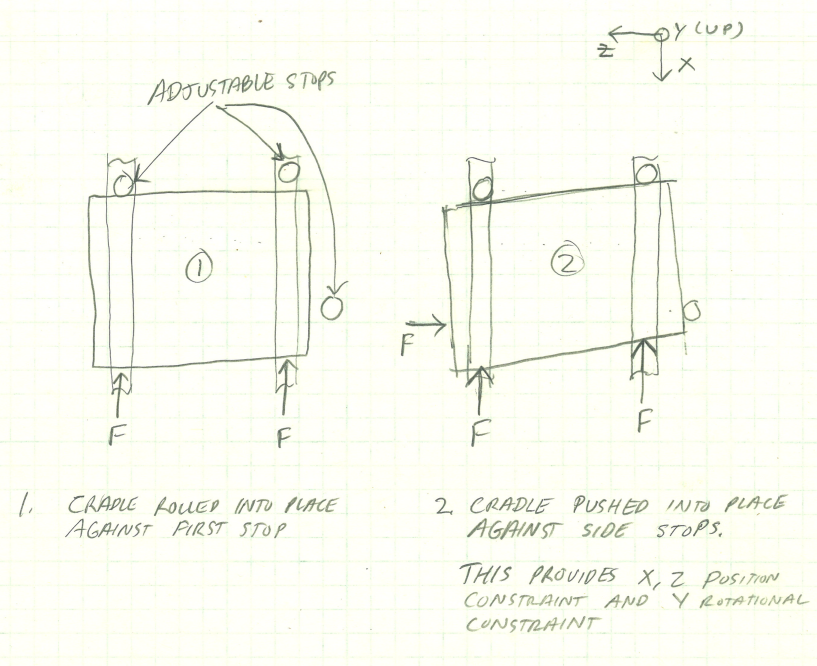 Y (UP)
Z
X
ADJUSTABLE STOPS
1
2
F
F
F
F
F
1. CRADLE ROLLED INTO PLACE
AGAINST FIRST STOP
2 CRADLE PUSHED INTO PLACE
AGAINST SIDE STOPS.
THIS PROVIDES X, Z POSITION
CONSTRAINT AND Y ROTATIONAL
CONSTRAINT